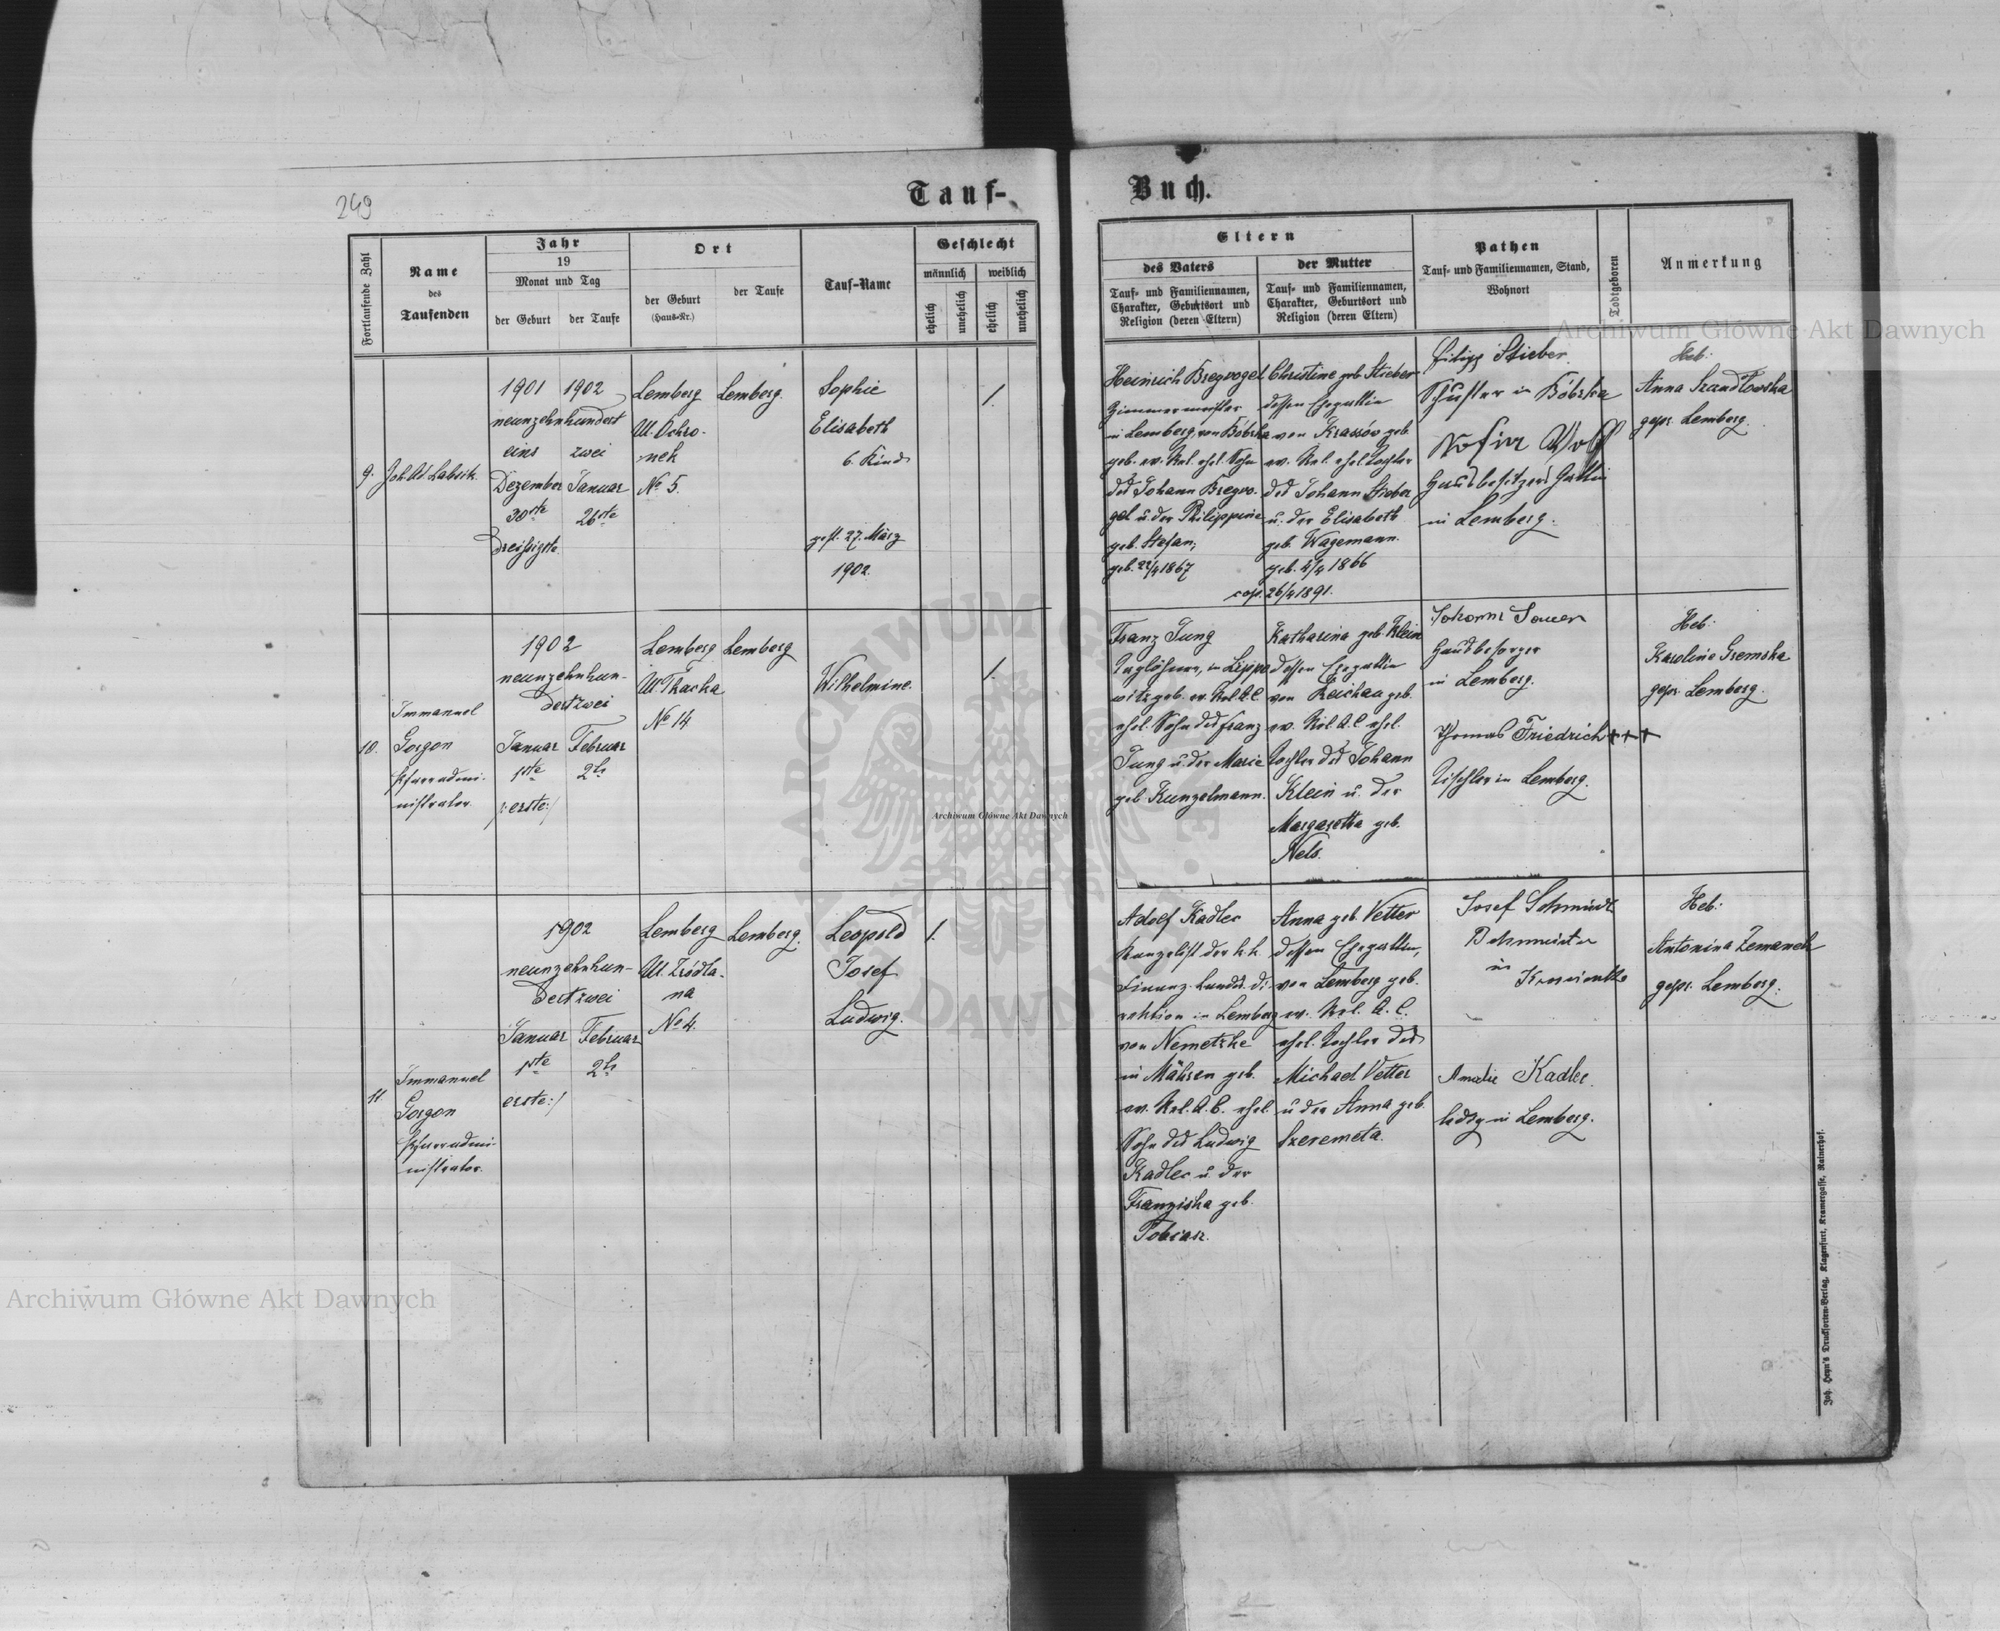 249
Tauf-
Buch.
Fortlaufende Zahl
Name
des
Taufenden
Jahr
19
Monat und Tag
der Geburt
der Taufe
Ort
der Geburt
(Haus-Nr.)
der Taufe
Tauf-Name
Geschlecht
männlich
weiblich
ehelich
unehelich
ehelich
unehelich
Eltern
des Vaters
Tauf- und Familiennamen,
Charakter, Geburtsort und
Religion (deren Eltern)
der Mutter
Tauf- und Familiennamen,
Charakter, Geburtsort und
Religion (deren Eltern)
Pathen
Tauf- und Familiennamen, Stand,
Wohnort
Todtgeboren
Anmerkung
9.
1901 1902
neunzehnhundert
eins zwei
Dezember Januar
30ste 26ste
dreißigste
Lemberg
Ul. Ochro-
nek
No 5.
Lemberg.
Sophie
Elisabeth
6. Kind
gest. 27. März
1902.
1.
Heinrich Bregvogel
Zimmermeister
in Lemberg, von Bóbrka
geb. ev. Rel. ehel. Sohn
des Johann Bregvo-
gel u. der Philippine
geb. Stefan;
geb. 22/4 1867
Christine geb. Stieber
dessen Ehegattin
von Krassów geb.
ev. Rel. ehel. Tochter
des Johann Stieber
u. der Elisabeth
geb. Wagemann.
geb. 4/4 1866
cop. 26/4 1891.
Filipp Stieber
Schuster in Bóbrka
Wolf
Hausbesitzers Gattin
in Lemberg.
Heb:
Anna Szandlowska
gepr. Lemberg.
10.
Immanuel
Gorgon
Pfarradmi-
nistrator
1902
neunzehnhun-
dertzwei
Januar Februar
1ste 2te
/:erste:/
Lemberg
Ul. Tkacka
No 14
Lemberg
Wilhelmine.
1.
Franz Jung
Taglöhner, in Lippo-
witz geb. ev. Rel. A.C.
ehel. Sohn des Franz
Jung u. der Marie
geb. Kunzelmann.
Katharina geb. Klein
dessen Ehegattin
von Reichau geb.
ev. Rel. A.C. ehel.
Tochter des Johann
Klein u. der
Margaretha geb.
Nels.
Johann Sauer
Hausbesorger
in Lemberg.
Thomas Friedrich +++
Tischler in Lemberg.
Heb:
Karoline Gremska
gepr. Lemberg.
11
Immanuel
Gorgon
Pfarradmi-
nistrator
1902
neunzehnhun-
dertzwei
Januar Februar
1ste 2te
erste:/
Lemberg
Ul. Zródla-
na
No 4.
Lemberg.
Leopold
Josef
Ludwig.
1.
Adolf Kadlec
Kanzelist der k.k.
Finanz-Landes-Di-
rektion in Lemberg
von Nemetzke
in Mähren geb.
ev. Rel. A.B. ehel.
Sohn des Ludwig
Kadlec u. der
Franziska geb.
Tobiasz.
Anna geb. Vetter
dessen Ehegattin,
von Lemberg geb.
ev. Rel. A.C.
ehel. Tochter des
Michael Vetter
u. der Anna geb.
Szeremeta.
Josef Schmidt
in
Amalie Kadlec
ledig in Lemberg.
Heb:
Antonina Zemanek
gepr. Lemberg.
Joh. Heyn's Drucksorten-Verlag, Klagenfurt, Kramergasse, Rainerhof.
Archiwum Główne Akt Dawnych
Archiwum Główne Akt Dawnych
Archiwum Główne Akt Dawnych